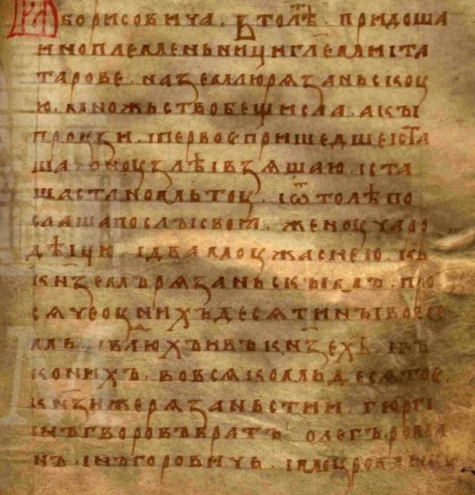 борисовича. В то лѣⷮ. придоша
иноплеменьници гл҃емии та
тарове. на землю рязаньскоу
ю. множьство бещисла. акы
проузи. і первое пришедше і ста
ша о ноузлѣ і взяша ю. і ста
ша станомь тоу. і ѿтолѣ по
слаша послы своя. жену чаро
дѣіцю. і два моужа с нею. къ
кнземъ рязаньскымъ. про
сяче оу нихъ десятины во все
мь. і в люхъ и въ кнзехъ. і въ
конихъ. во всякомь десятое.
кнзи же рязаньстии. гюрги
инъгворовъ братъ олегъ. рома
нъ. інъгоровичь.